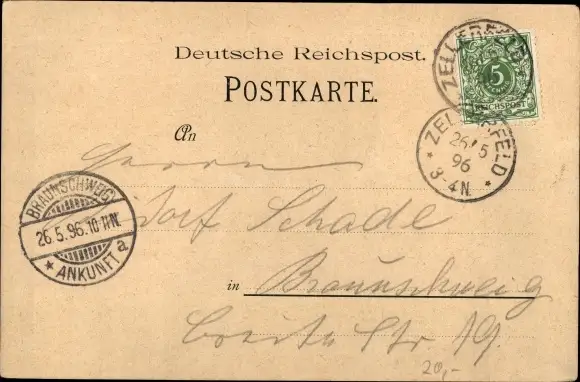 Deutsche Reichspost.
POSTKARTE.
An
Herrn
Schade
in Braunschweig
Breite Str. 19.
20,-
ZELLERFELD
5
REICHSPOST
ZELLERFELD
26/5
96
3-4N.
BRAUNSCHWEIG
26.5.96.10-11N.
ANKUNFT a